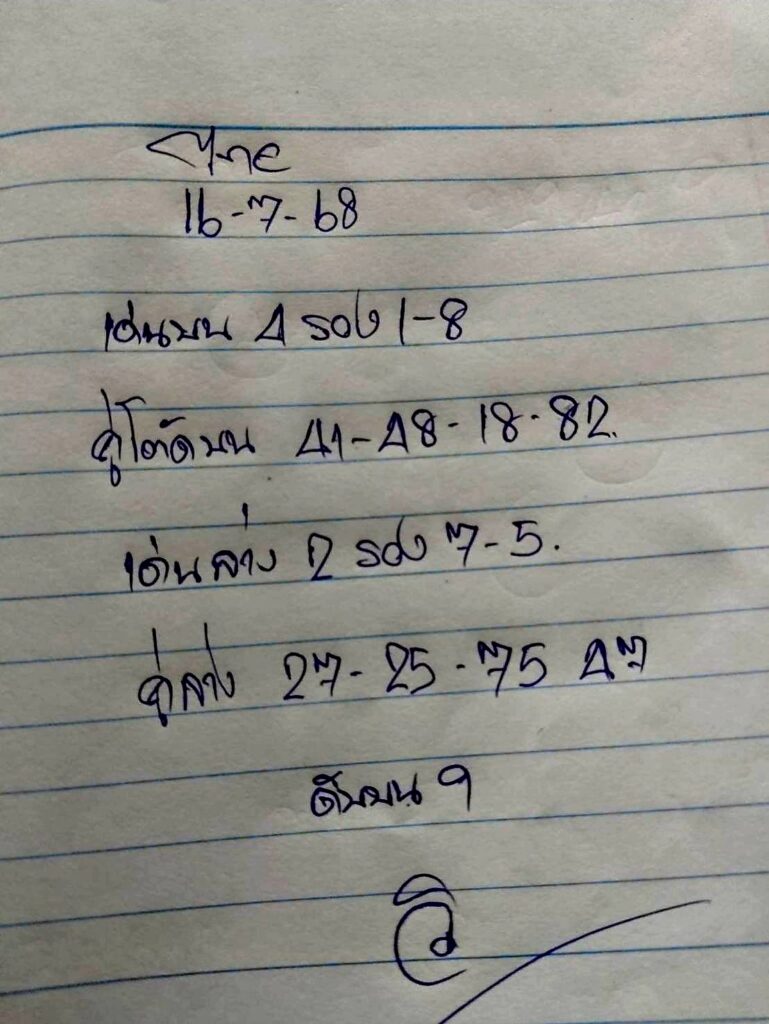 ไทย
16-7-68
เด่นบน 4 รอง 1-8
คู่โต๊ดบน 41-48-18-82.
เด่นล่าง 2 รอง 7-5.
คู่ล่าง 27-25-75 47
ดับบน 9
วิ